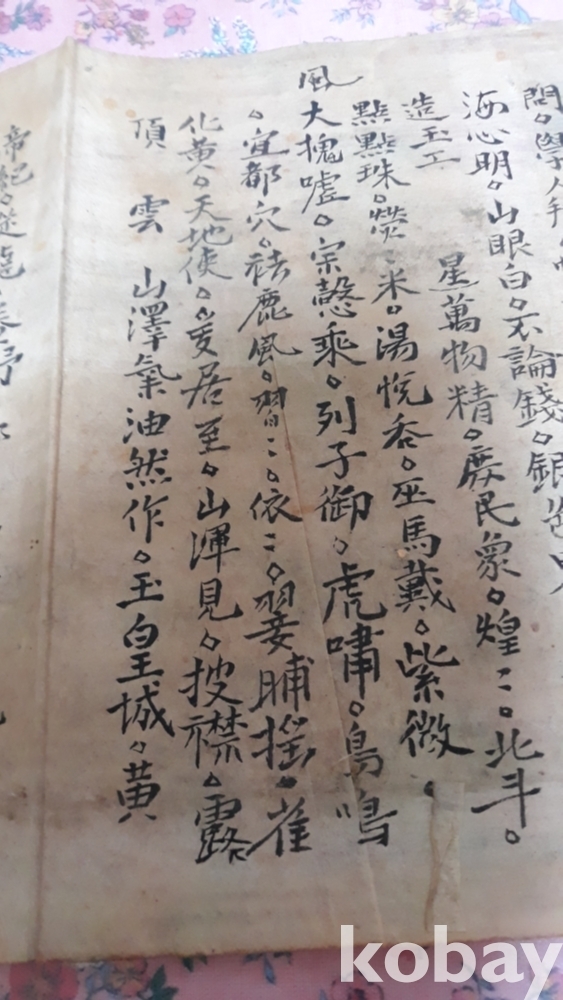 問。學
海心明。山眼白。不論錢。銀
造玉工 星萬物精。庶民象。煌〻。北斗。
點點珠。熒〻米。湯悅呑。巫馬戴。紫微。
風大槐噓。宗慤乘。列子御。虎嘯。鳥鳴
。宜都穴。祛鹿風。習〻。依〻。翣脯搖。雀
化黃。天地使。爰居至。山渾見。披襟。露
頂 雲 山澤氣油然作。玉皇城。黃
帝紀。從龍
kobay